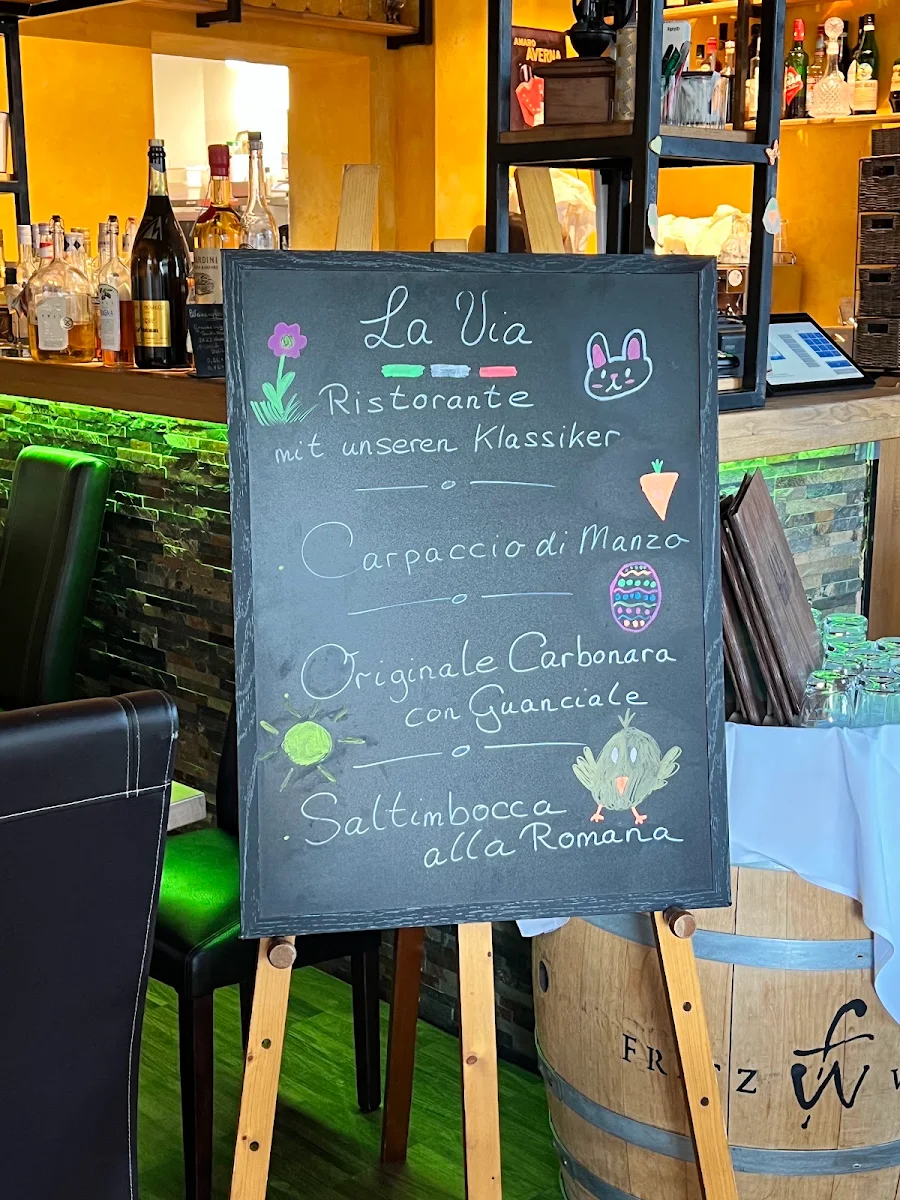 AMARO
AVERNA
La Via
Ristorante
mit unseren Klassiker
Carpaccio di Manzo
Originale Carbonara
con Guanciale
Saltimbocca
alla Romana
W